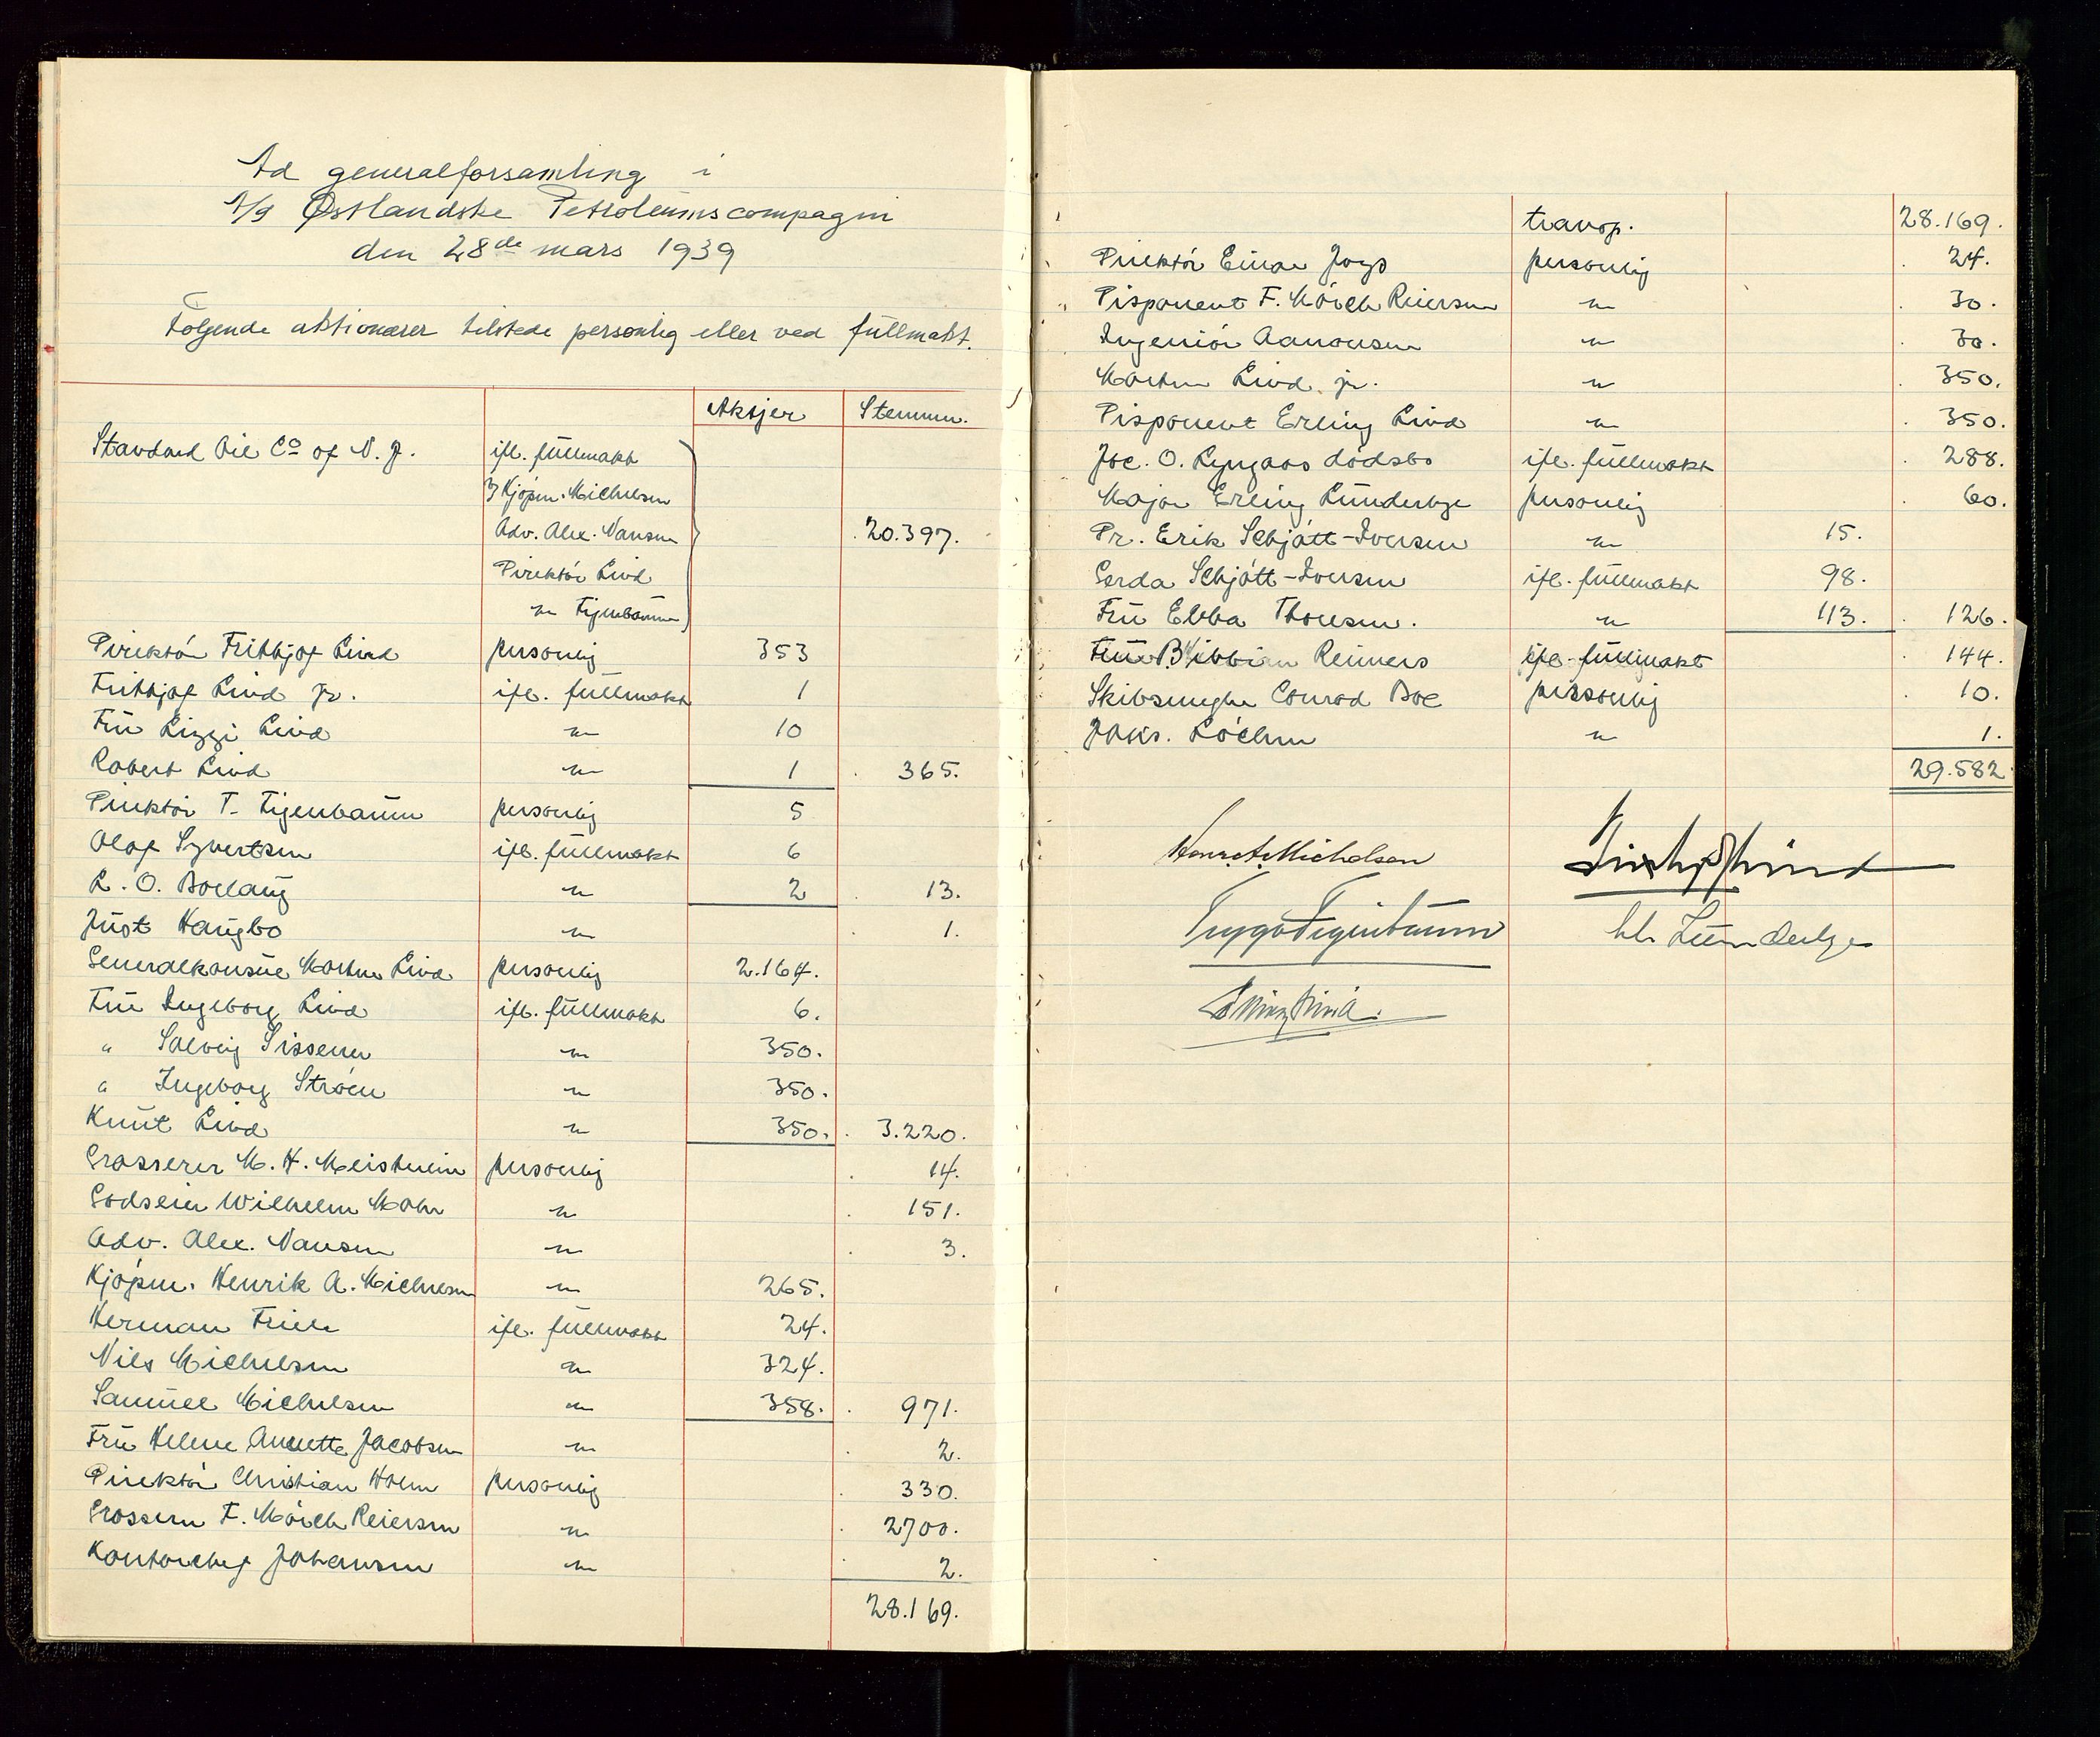 Ad generalforsamling i
A/S Østlandske Petroleumscompagni
den 28de mars 1939
Følgende aktionærer tilstede personlig eller ved fullmakt.
Aksjer Stemmer.
Standard Oil Co of N. J. ifl. fullmakt
v/ Kjøpm. Michelsen
Adv. Alex. Nansen 20.397.
Direktör Lind
" Figenbaum
Direktör Frithjof Lind personlig 353
Frithjof Lind jr. ifl. fullmakt 1
Fru Lizzi Lind " 10
Robert Lind " 1 365.
Direktör T. Figenbaum personlig 5
Olaf Syvertsen ifl. fullmakt 6
L. O. Borlaug " 2 13.
Just Haugbo " 1.
Generalkonsul Morten Lind personlig 2.164.
Fru Ingeborg Lind ifl. fullmakt 6.
" Solveig Sissener " 350.
" Ingeborg Ströen " 350.
Knut Lind " 350. 3.220.
Grosserer M. H. Meisterlin personlig 14.
Godseier Wilhelm Mohr " 151.
Adv. Alex. Nansen " 3.
Kjøpm. Henrik A. Michelsen " 265.
Herman Friele ifl. fullmakt 24.
Nils Michelsen " 324.
Samuel Michelsen " 358. 971.
Fru Helene Annette Jacobsen " 2.
Direktör Christian Holm personlig 330.
Grosserer F. Mörch Reiersen " 2700.
Kontorchef Johansen " 2.
28.169.
transp. 28.169.
Direktör Einar Joys personlig 24.
Disponent F. Mörch Reiersen " 30.
Ingeniör Aanonsen " 30.
Morten Lind jr. " 350.
Disponent Erling Lind " 350.
Joc. O. Lyngaas dödsbo ifl. fullmakt 288.
Major Erling Lunderbye personlig 60.
Dr. Erik Schjött-Iversen " 15.
Gerda Schjött-Iversen ifl. fullmakt 98.
Fru Ebba Thoresen. " 113. 126.
Fru Reimers ifl. fullmakt 144.
Skibsmegler Conrad Boe personlig 10.
Johs. Löchen " 1.
29.582
Henr. A. Michelsen Frithjof Lind
Trygve Figenbaum Lunderbye
Erling Lind.